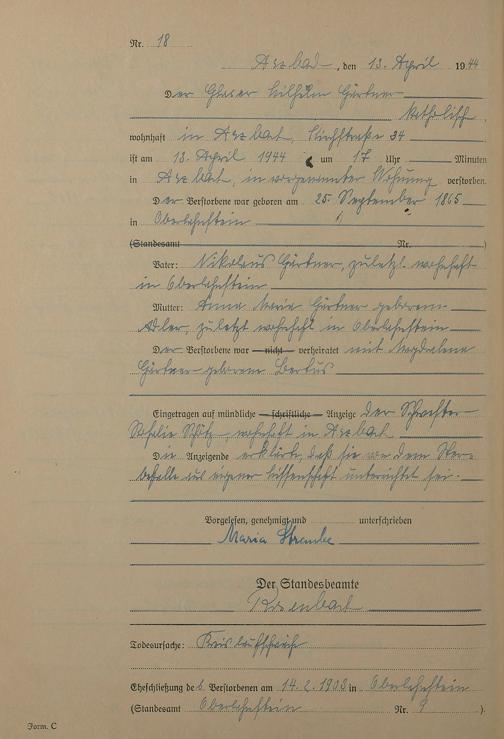 Nr. 18
Arzbach, den 13. April 1944
Der Glaser Wilhelm Gärtner
katholisch
wohnhaft in Arzbach, Kirchstraße 34
ist am 13. April 1944 um 17 Uhr Minuten
in Arzbach, in vorgenannter Wohnung verstorben.
Der Verstorbene war geboren am 25. September 1865
in Oberlahnstein
(Standesamt Nr. )
Vater: Nikolaus Gärtner, zuletzt wohnhaft
in Oberlahnstein
Mutter: Anna Maria Gärtner geborene
Adler, zuletzt wohnhaft in Oberlahnstein
Der Verstorbene war nicht verheiratet mit Magdalena
Gärtner geborene
Eingetragen auf mündliche schriftliche Anzeige der Schwester
wohnhaft in Arzbach
Die Anzeigende erklärte, daß sie von dem Ster-
befalle aus eigener Wissenschaft unterrichtet sei.
Vorgelesen, genehmigt und unterschrieben
Maria
Der Standesbeamte
Todesursache:
Eheschließung des Verstorbenen am 14.2.1903 in Oberlahnstein
(Standesamt Oberlahnstein Nr. 9 ).
Form. C